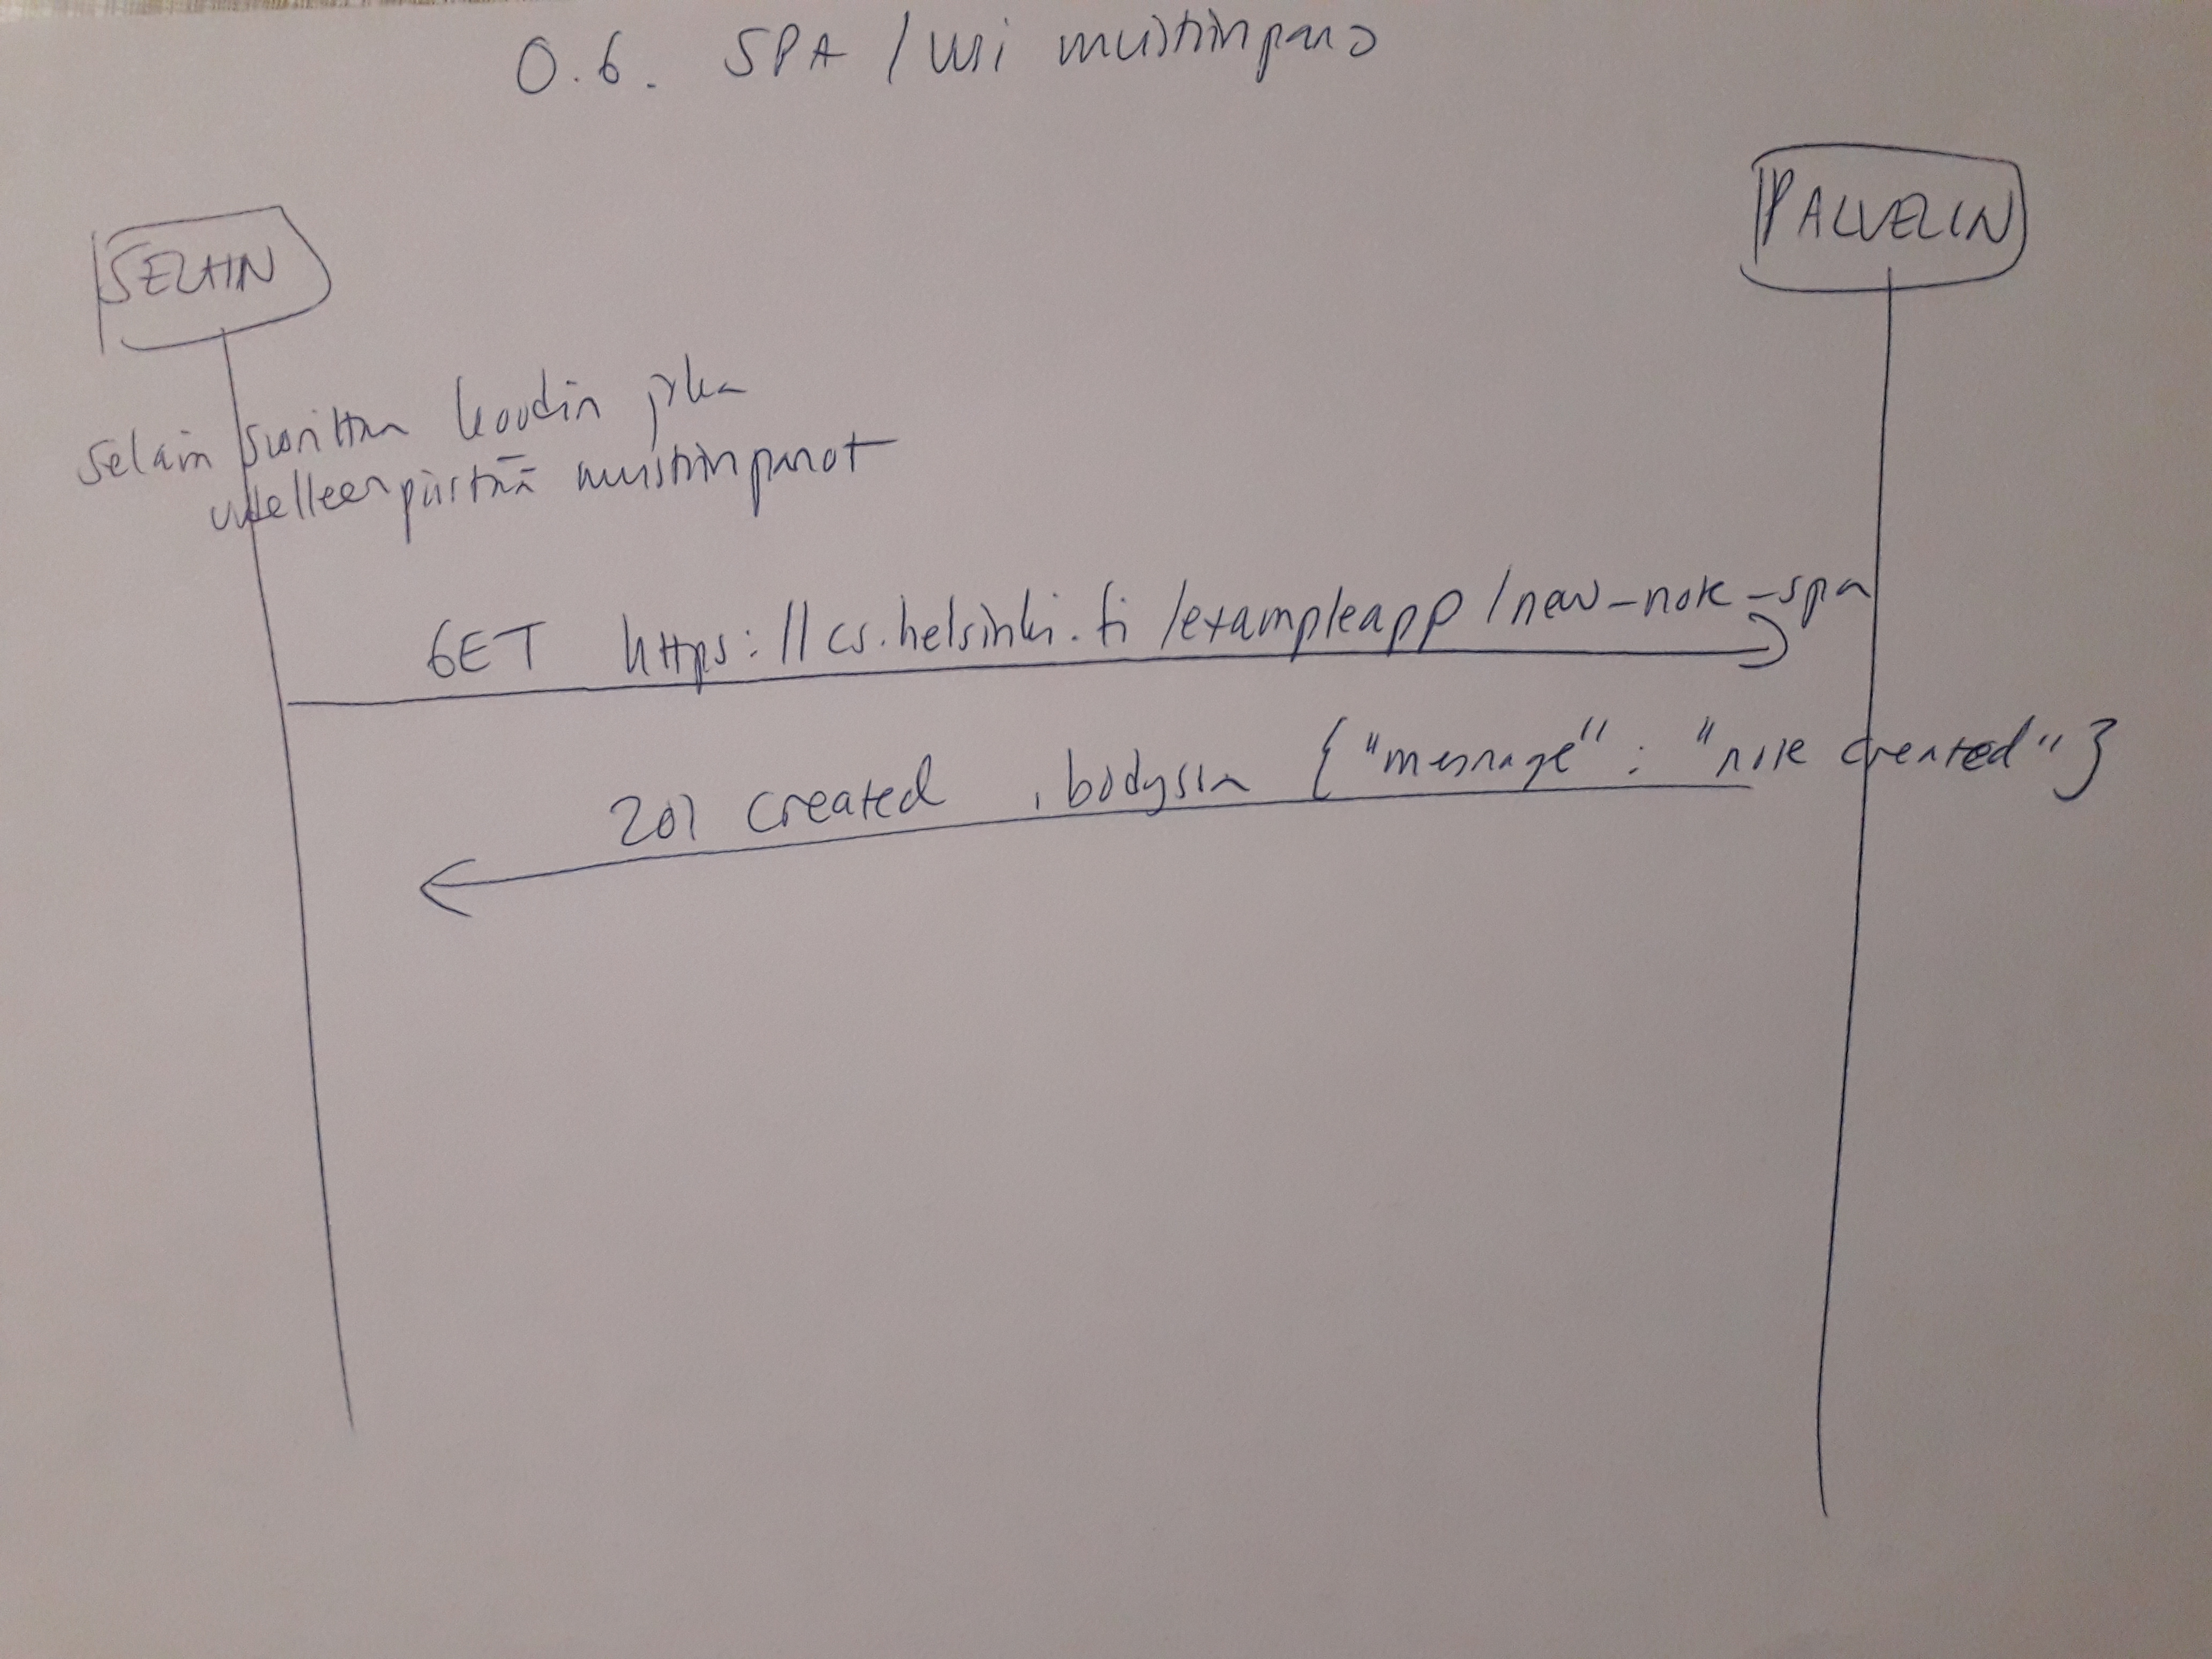 0.6. SPA / uusi muistiinpano
SELAIN
PALVELIN
Selain suorittaa koodin joka
uudelleenpiirtää muistiinpanot
GET https://cs.helsinki.fi/exampleapp/new-note-spa
201 created , bodyssa {"message" : "note created"}